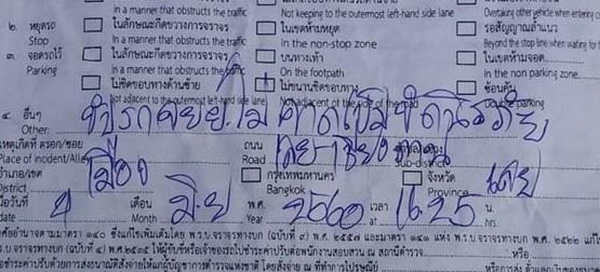 In a manner that obstructs the traffic Not keeping to the outermost left-hand side lane Overtaking other vehicle when entering
๒. หยุดรถ ในลักษณะกีดขวางการจราจร ในเขตห้ามหยุด รอสัญญาณล้ำแนว
Stop In a manner that obstructs the traffic In the non-stop zone Beyond the stop line when waiting for
๓. จอดรถไว้ ในลักษณะกีดขวางการจราจร บนทางเท้า ในเขตห้ามจอด
Parking In a manner that obstructs the traffic On the footpath In the non parking zone
ไม่ชิดขอบทางด้านซ้าย ไม่ขนานชิดขอบทาง ซ้อนคัน
Not adjacent to the outermost left-hand side lane Not adjacent of the side of the road Double parking
๔. อื่นๆ ขับรถจยย.ไม่คาดเข็มขัดนิรภัย
Other
เหตุเกิดที่ ตรอก/ซอย ถนน เลย-เชียงคาน
Place of incident/Alle Road Sub-district
อำเภอ/เขต เมือง กรุงเทพมหานคร จังหวัด เลย
District Bangkok Province
เมื่อวันที่ 4 เดือน มิ.ย พ.ศ. 2560 เวลา 11.25 น.
date Month Year at hrs.
ศัยอำนาจตามมาตรา ๑๔๐ ซึ่งแก้ไขเพิ่มเติมโดย พ.ร.บ.จราจรทางบก (ฉบับที่ ๙) พ.ศ. ๒๕๕๗ และมาตรา ๑๔๑ แห่ง พ.ร.บ.จราจรทางบก พ.ศ. ๒๕๒๒ แก้ไข
พ.ร.บ.จราจรทางบก (ฉบับที่ ๔) พ.ศ.๒๕๓๕ ให้ผู้ขับขี่หรือเจ้าของรถไปชำระค่าปรับต่อพนักงานสอบสวน ณ สถานีตำรวจ หรือ